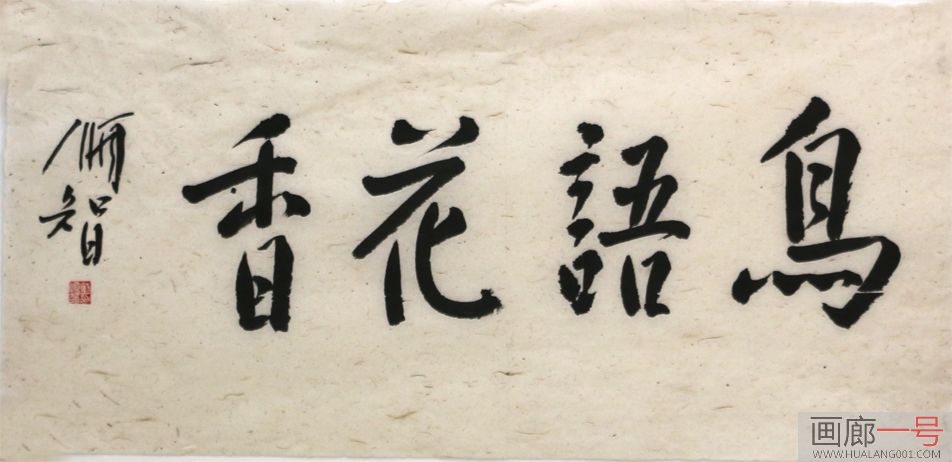 鳥語花香
佩智
画廊一号
WWW.HUALANG001.COM